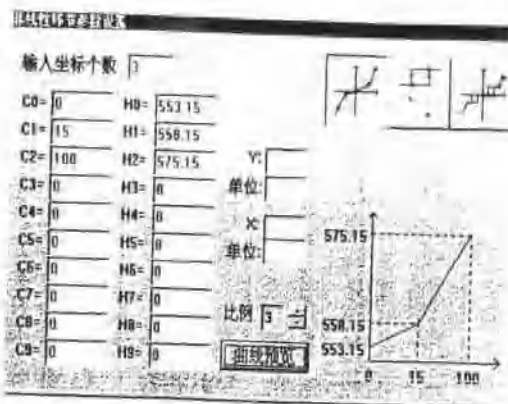 非线性环节参数设置
输入坐标个数 3
C0= 0 H0= 553.15
C1= 15 H1= 558.15
C2= 100 H2= 575.15 Y:
C3= 0 H3= 0 单位:
C4= 0 H4= 0 X:
C5= 0 H5= 0 单位:
C6= 0 H6= 0
C7= 0 H7= 0
C8= 0 H8= 0 比例 3
C9= 0 H9= 0 曲线预览
575.15
558.15
553.15
0 15 100